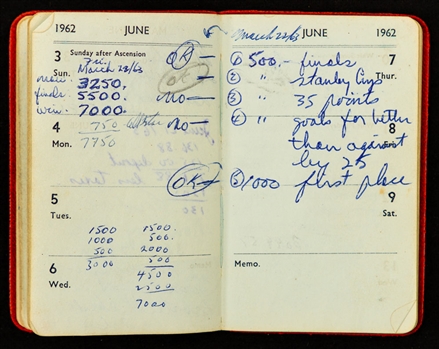 1962 JUNE
3 Sunday after Ascension OK—
Fri.
Sun. March 22/63 OK —
3250.
finals 5500. no—
win 7000.
4 750 no—
Mon. 7750
OK—
5
Tues.
1500 1500.
1000 500.
500 2000
6 3000 500
Wed. 4500
2500
7000
March 22/63 JUNE 1962
① 500.- finals 7
② " Stanley Cup Thur.
③ " 35 points
④ " goals for better 8
than against
by 25
⑤ 1000 first place
9
Sat.
Memo.